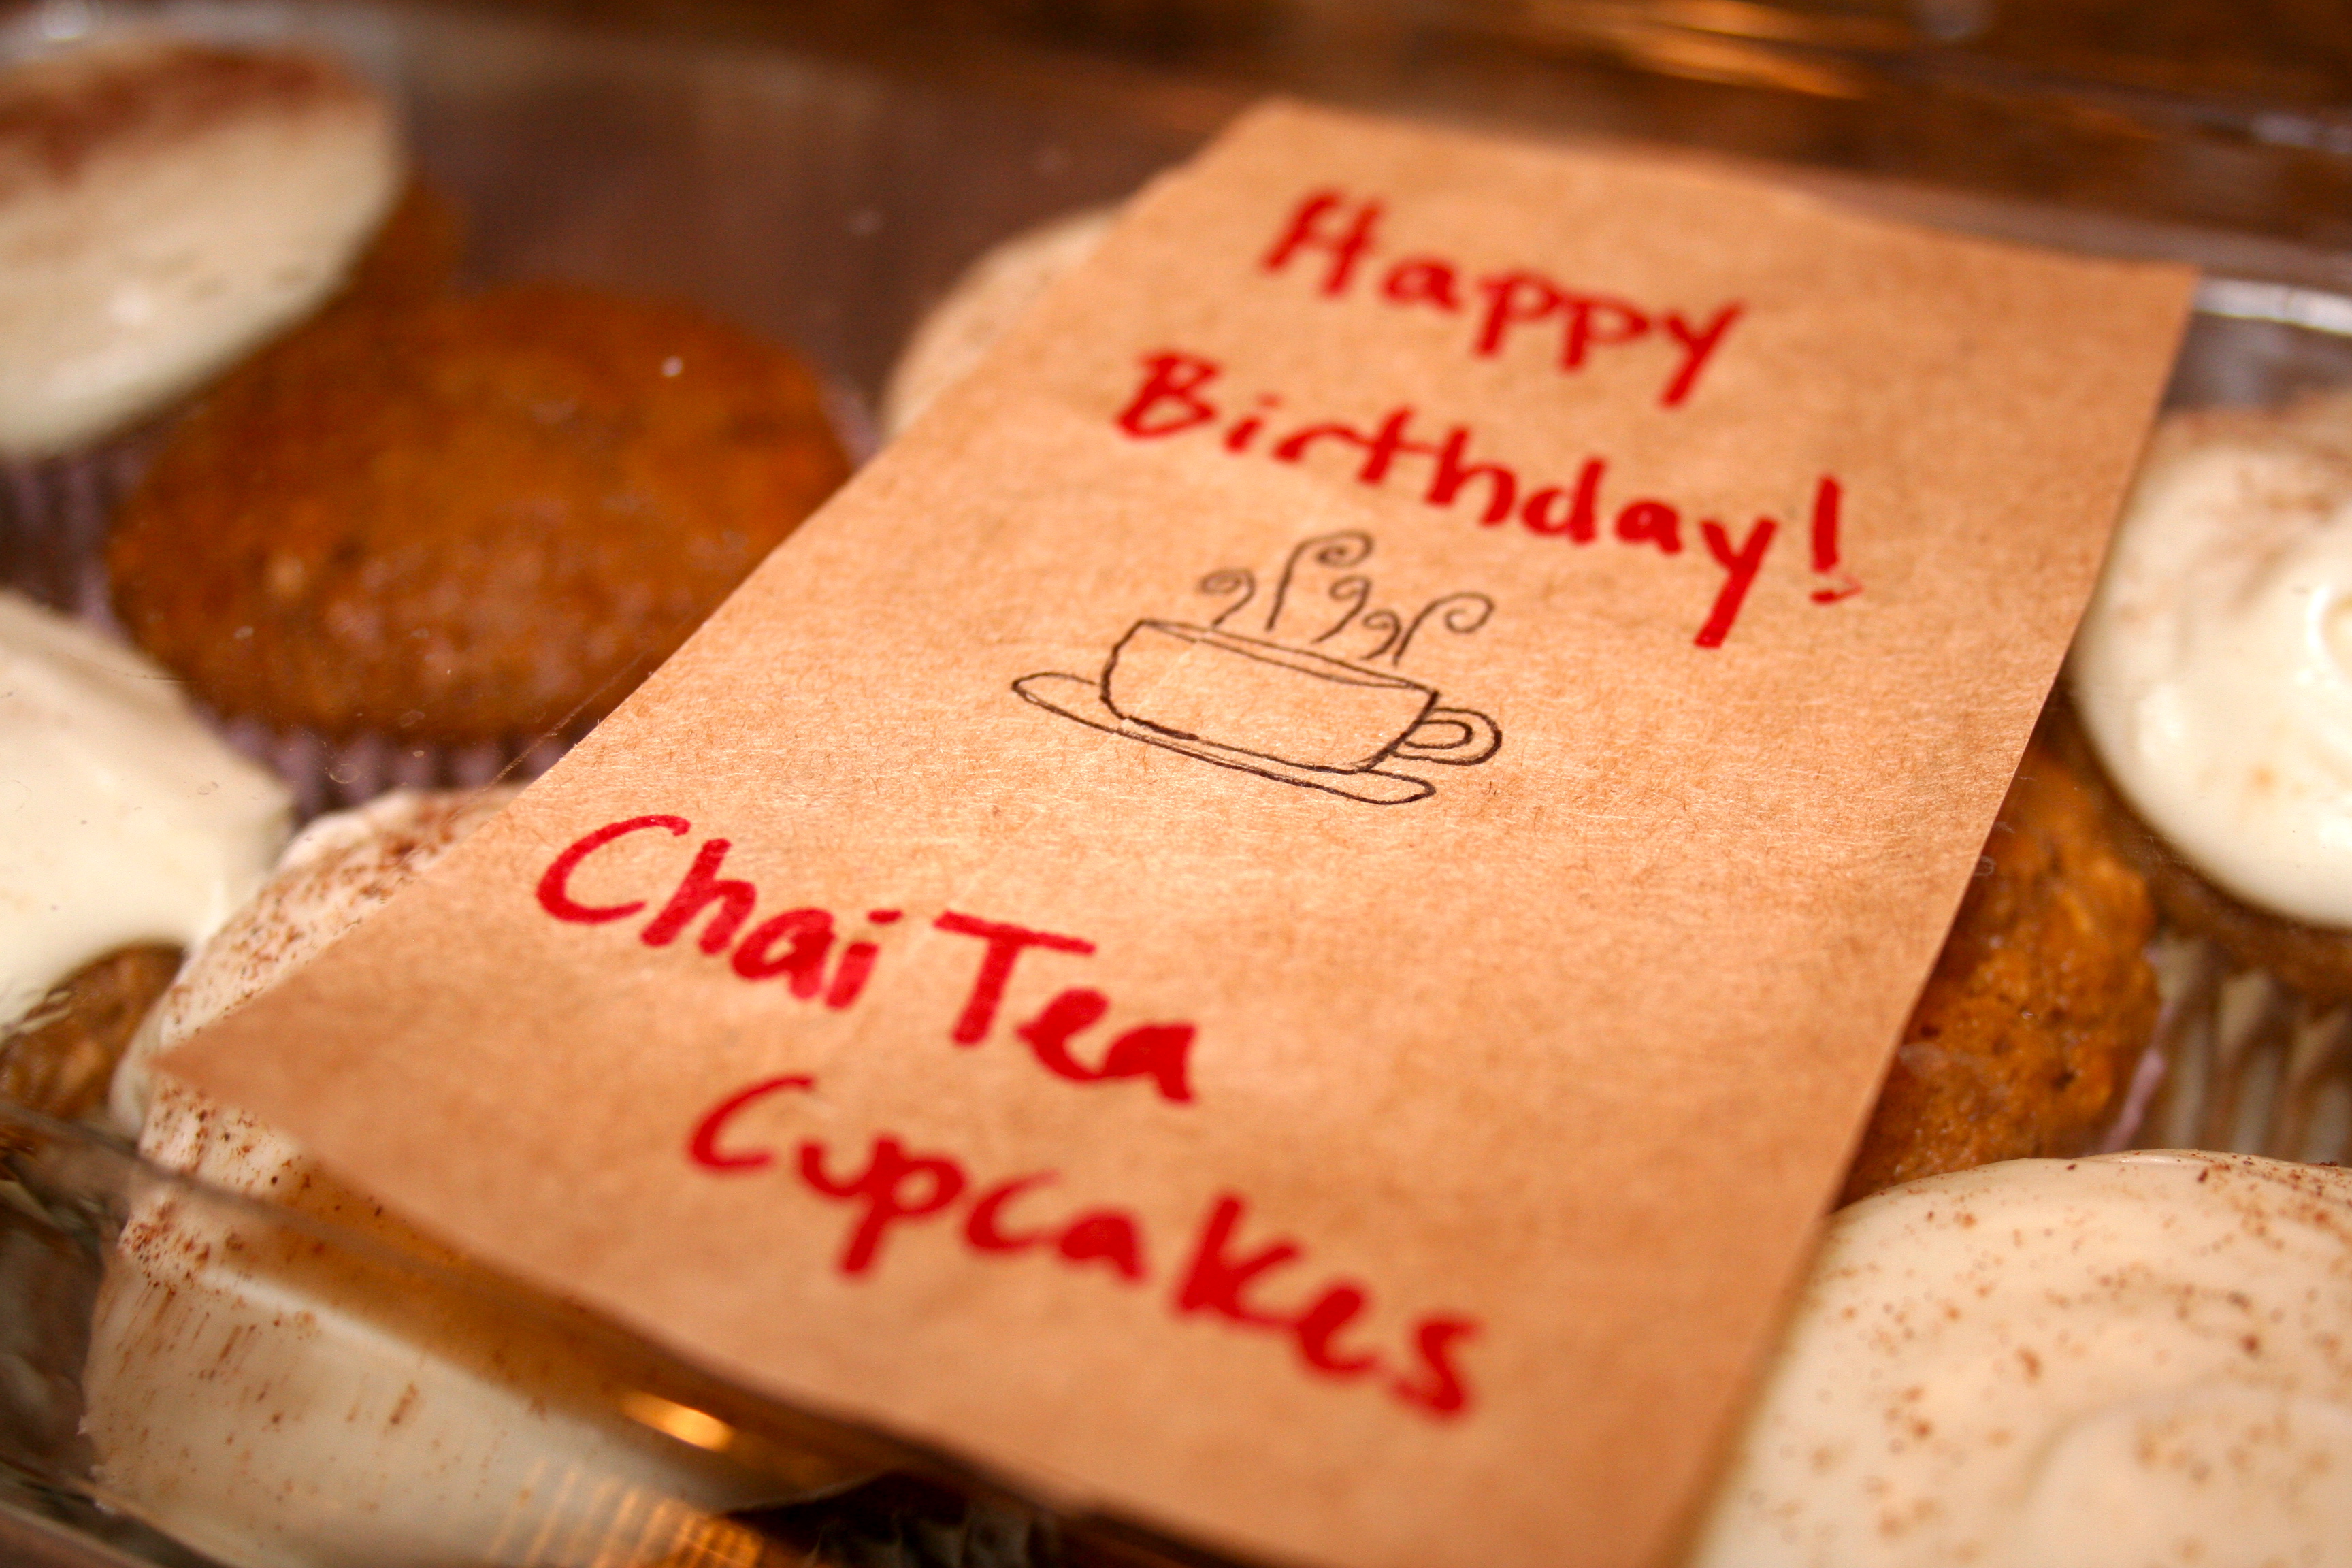 Happy
Birthday!
Chai Tea
Cupcakes